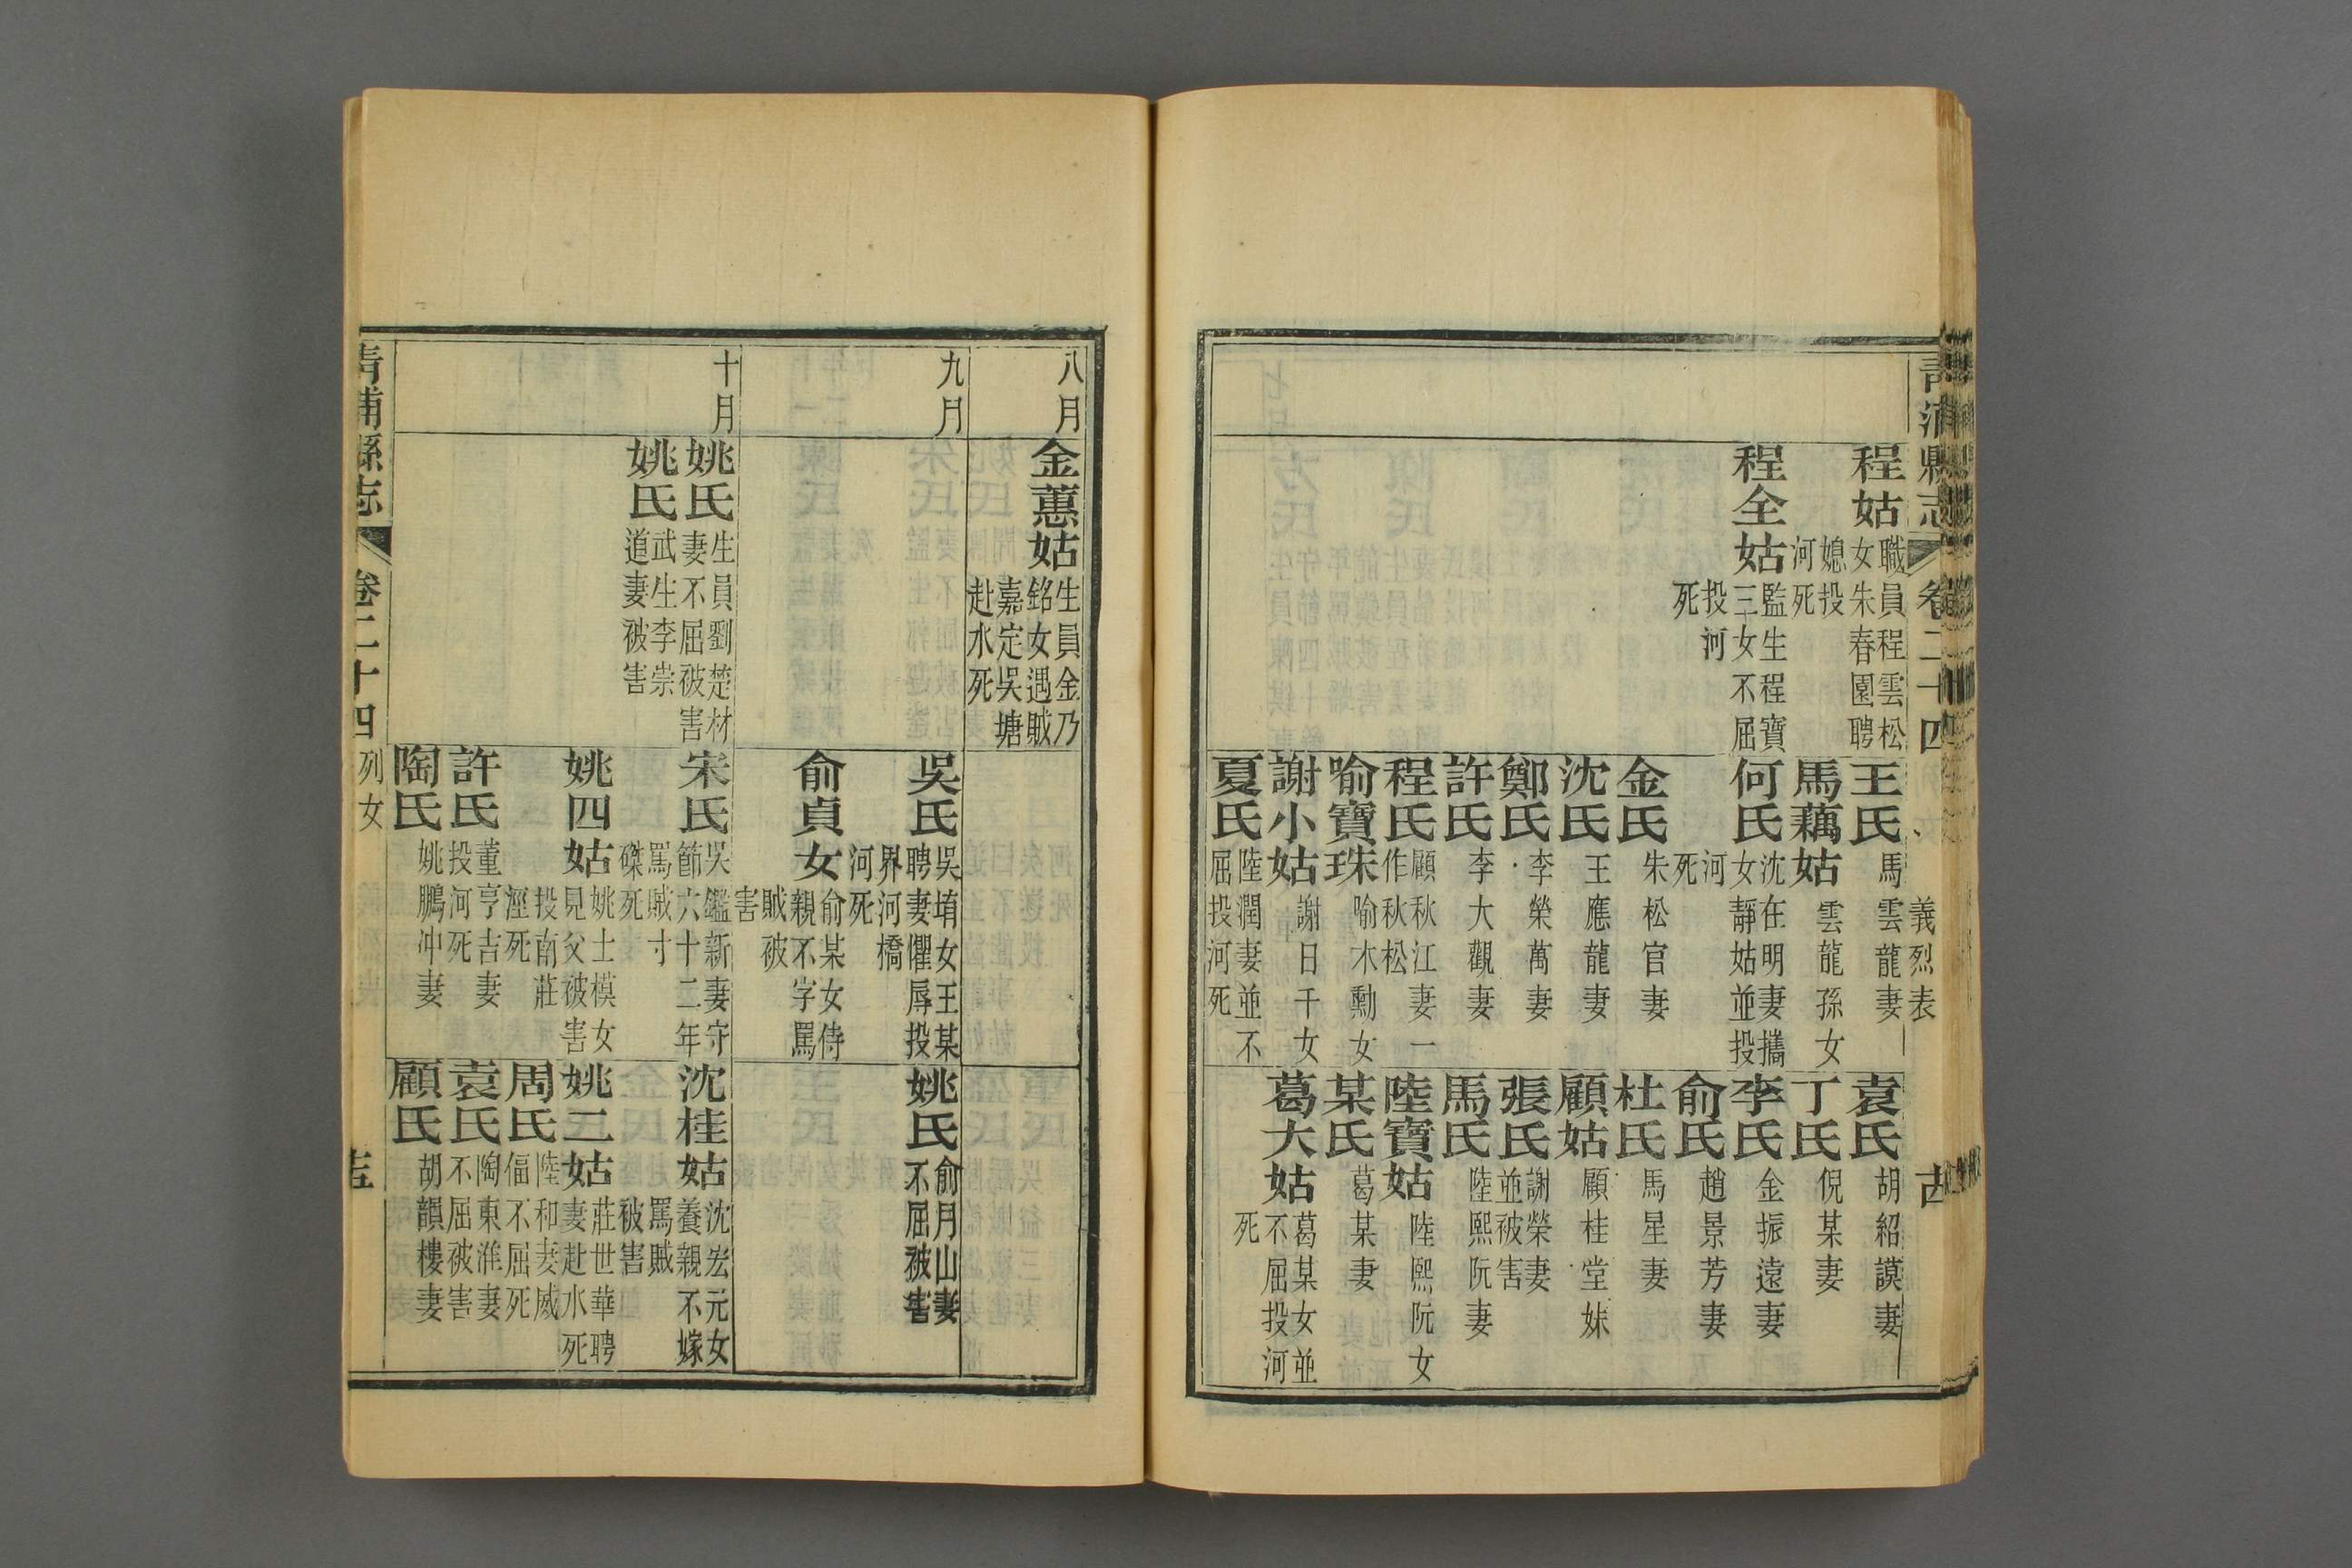 青浦縣志 卷二十四 義烈表
程姑 職員程雲松女朱春園聘媳投河死
程全姑 監生程寶三女不屈投河死
王氏 馬雲龍妻
馬藕姑 雲龍孫女
何氏 沈在明妻攜女靜姑並投河死
金氏 朱松官妻
沈氏 王應龍妻
鄭氏 李榮萬妻
許氏 李大觀妻
程氏 顧秋江妻一作秋松
喻寶珠 喻木勳女
謝小姑 謝日千女
夏氏 陸潤妻並不屈投河死
袁氏 胡紹謨妻
丁氏 倪某妻
李氏 金振遠妻
俞氏 趙景芳妻
杜氏 馬星妻
顧姑 顧桂堂妹
張氏 謝榮妻並被害
馬氏 陸熙阮妻
陸寶姑 陸熙阮女
某氏 葛某妻
葛大姑 葛某女並不屈投河死
八月
金蕙姑 生員金乃銘女遇賊嘉定吳塘赴水死
九月
吳氏 吳堉女王某聘妻懼辱投界河橋河死
俞貞女 俞某女侍親不字罵賊被害
姚氏 俞月山妻不屈被害
十月
姚氏 生員劉楚材妻不屈被害
姚氏 武生李崇道妻被害
宋氏 吳鑑新妻守節六十二年罵賊寸磔死
姚四姑 姚士模女見父被害投南莊涇死
許氏 董亨吉妻投河死
陶氏 姚鵬冲妻
沈桂姑 沈宏元女養親不嫁罵賊被害
姚二姑 莊世華聘妻赴水死
周氏 陸和妻威偪不屈死
袁氏 陶東淮妻不屈被害
顧氏 胡韻樓妻
青浦縣志 卷二十四 列女